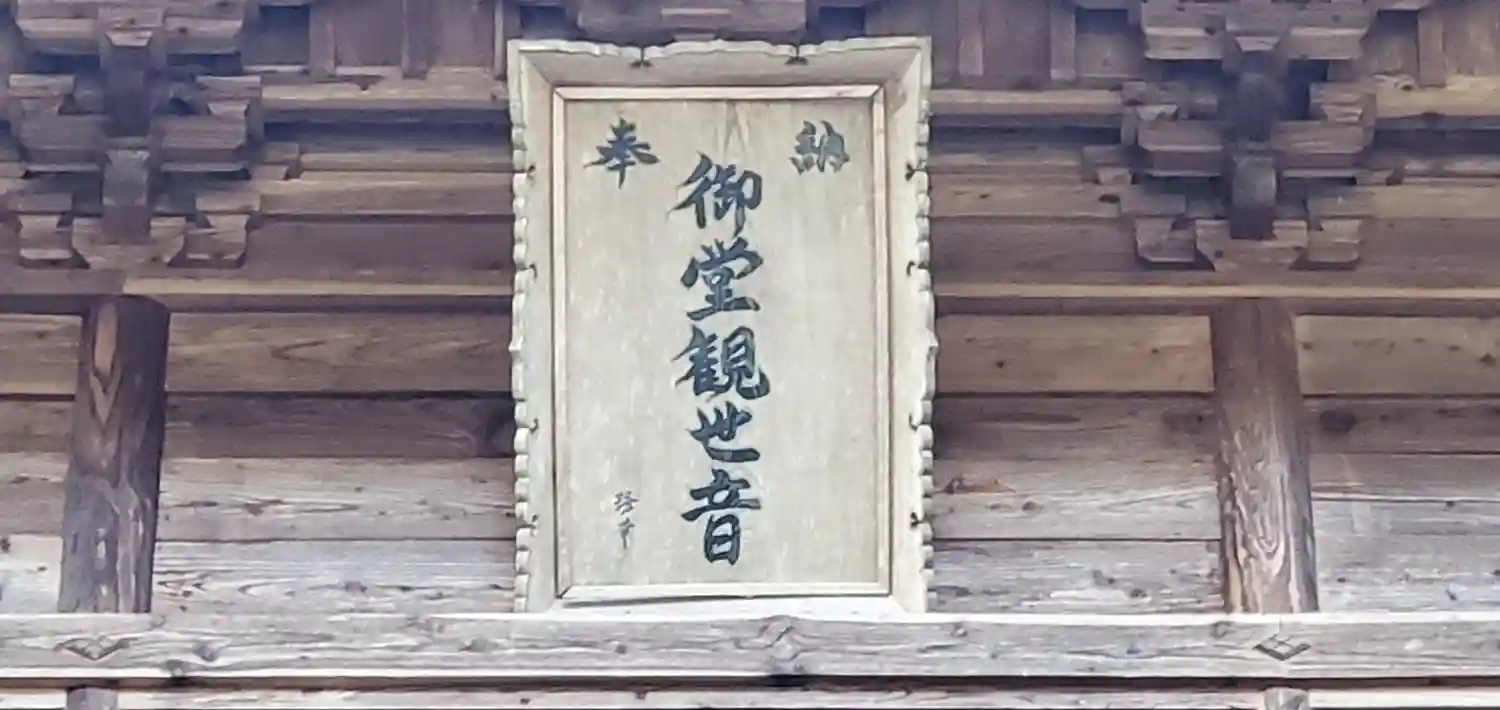 奉納
御堂観世音